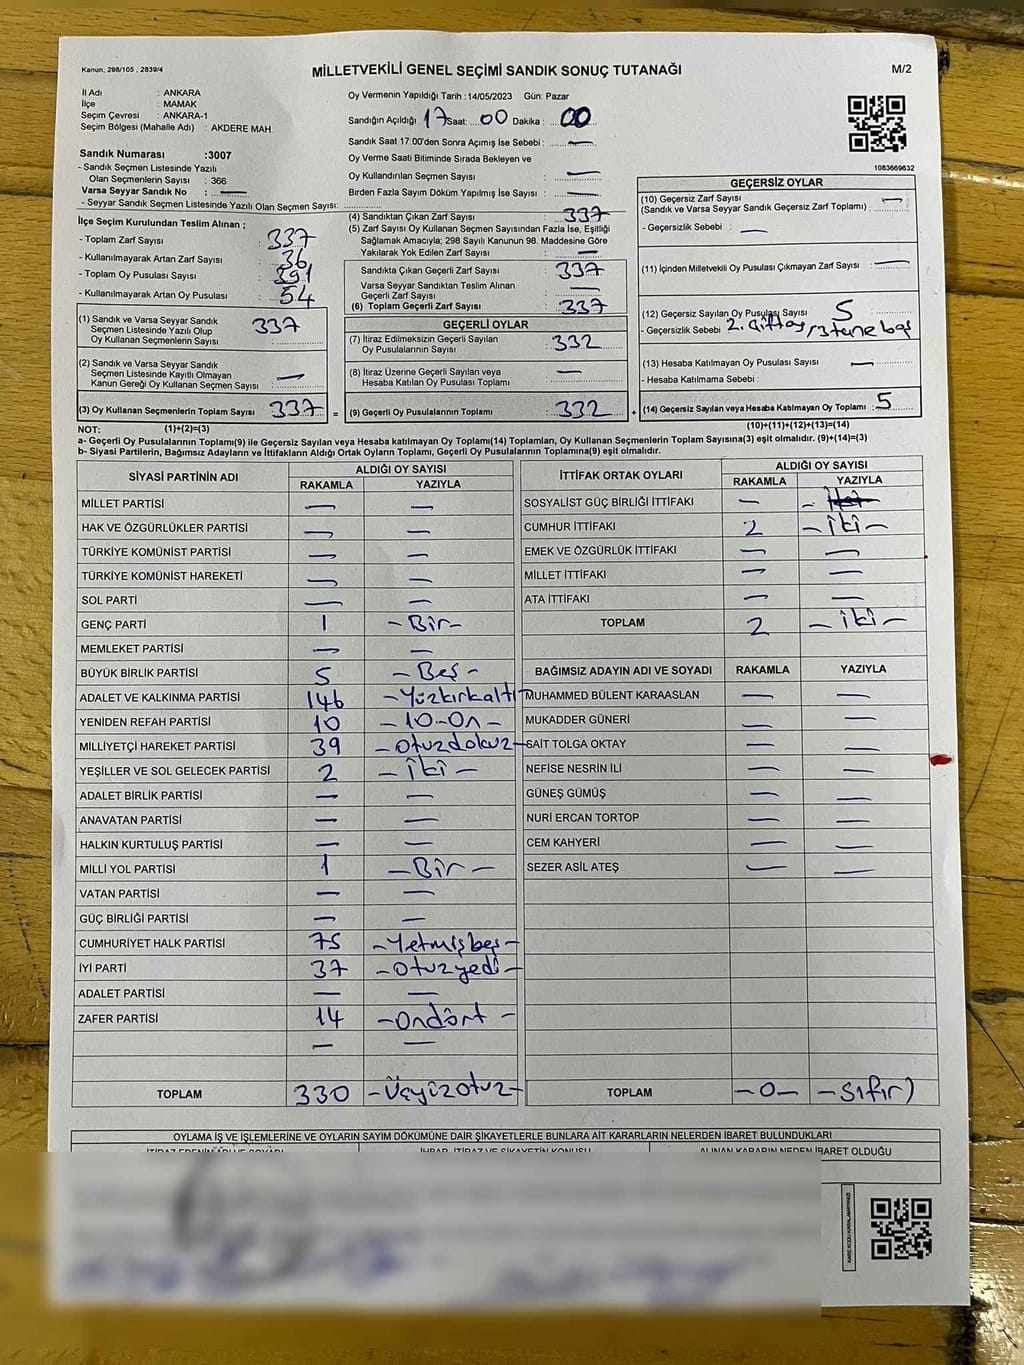 Kanun; 298/105 , 2839/4
MİLLETVEKİLİ GENEL SEÇİMİ SANDIK SONUÇ TUTANAĞI
M/2
İl Adı : ANKARA
İlçe : MAMAK
Seçim Çevresi : ANKARA-1
Seçim Bölgesi (Mahalle Adı) : AKDERE MAH.
Oy Vermenin Yapıldığı Tarih : 14/05/2023 Gün: Pazar
Sandığın Açıldığı 17 Saat: 00 Dakika : 00
Sandık Saat 17:00'den Sonra Açımış İse Sebebi : —
Oy Verme Saati Bitiminde Sırada Bekleyen ve
Oy Kullandırılan Seçmen Sayısı : —
Birden Fazla Sayım Döküm Yapılmış İse Sayısı : —
1083669632
Sandık Numarası :3007
- Sandık Seçmen Listesinde Yazılı
Olan Seçmenlerin Sayısı : 366
Varsa Seyyar Sandık No : —
- Seyyar Sandık Seçmen Listesinde Yazılı Olan Seçmen Sayısı:
İlçe Seçim Kurulundan Teslim Alınan ;
- Toplam Zarf Sayısı : 337
- Kullanılmayarak Artan Zarf Sayısı : 36
- Toplam Oy Pusulası Sayısı : 391
- Kullanılmayarak Artan Oy Pusulası : 54
(1) Sandık ve Varsa Seyyar Sandık
Seçmen Listesinde Yazılı Olup
Oy Kullanan Seçmenlerin Sayısı : 337
(2) Sandık ve Varsa Seyyar Sandık
Seçmen Listesinde Kayıtlı Olmayan
Kanun Gereği Oy Kullanan Seçmen Sayısı : —
(3) Oy Kullanan Seçmenlerin Toplam Sayısı : 337 =
(1)+(2)=(3)
(4) Sandıktan Çıkan Zarf Sayısı : 337
(5) Zarf Sayısı Oy Kullanan Seçmen Sayısından Fazla İse, Eşitliği
Sağlamak Amacıyla; 298 Sayılı Kanunun 98. Maddesine Göre
Yakılarak Yok Edilen Zarf Sayısı : —
Sandıkta Çıkan Geçerli Zarf Sayısı : 337
Varsa Seyyar Sandıktan Teslim Alınan
Geçerli Zarf Sayısı : —
(6) Toplam Geçerli Zarf Sayısı : 337
GEÇERLİ OYLAR
(7) İtiraz Edilmeksizin Geçerli Sayılan
Oy Pusulalarının Sayısı : 332
(8) İtiraz Üzerine Geçerli Sayılan veya
Hesaba Katılan Oy Pusulası Toplamı : —
(9) Geçerli Oy Pusulalarının Toplamı : 332 +
GEÇERSİZ OYLAR
(10) Geçersiz Zarf Sayısı
(Sandık ve Varsa Seyyar Sandık Geçersiz Zarf Toplamı) : —
- Geçersizlik Sebebi : —
(11) İçinden Milletvekili Oy Pusulası Çıkmayan Zarf Sayısı : —
(12) Geçersiz Sayılan Oy Pusulası Sayısı : 5
- Geçersizlik Sebebi : 2. çift oy / 3 tane boş
(13) Hesaba Katılmayan Oy Pusulası Sayısı : —
- Hesaba Katılmama Sebebi :
(14) Geçersiz Sayılan veya Hesaba Katılmayan Oy Toplamı : 5
(10)+(11)+(12)+(13)=(14)
NOT:
a- Geçerli Oy Pusulalarının Toplamı(9) ile Geçersiz Sayılan veya Hesaba katılmayan Oy Toplamı(14) Toplamları, Oy Kullanan Seçmenlerin Toplam Sayısına(3) eşit olmalıdır. (9)+(14)=(3)
b- Siyasi Partilerin, Bağımsız Adayların ve İttifakların Aldığı Ortak Oyların Toplamı, Geçerli Oy Pusulalarının Toplamına(9) eşit olmalıdır.
SİYASİ PARTİNİN ADI ALDIĞI OY SAYISI
RAKAMLA YAZIYLA
MİLLET PARTİSİ — —
HAK VE ÖZGÜRLÜKLER PARTİSİ — —
TÜRKİYE KOMÜNİST PARTİSİ — —
TÜRKİYE KOMÜNİST HAREKETİ — —
SOL PARTİ — —
GENÇ PARTİ 1 -Bir-
MEMLEKET PARTİSİ — —
BÜYÜK BİRLİK PARTİSİ 5 -Beş-
ADALET VE KALKINMA PARTİSİ 146 -Yüzkırkaltı-
YENİDEN REFAH PARTİSİ 10 -10-On-
MİLLİYETÇİ HAREKET PARTİSİ 39 -Otuzdokuz-
YEŞİLLER VE SOL GELECEK PARTİSİ 2 -İki-
ADALET BİRLİK PARTİSİ — —
ANAVATAN PARTİSİ — —
HALKIN KURTULUŞ PARTİSİ — —
MİLLİ YOL PARTİSİ 1 -Bir-
VATAN PARTİSİ — —
GÜÇ BİRLİĞİ PARTİSİ — —
CUMHURİYET HALK PARTİSİ 75 -Yetmişbeş-
İYİ PARTİ 37 -Otuzyedi-
ADALET PARTİSİ — —
ZAFER PARTİSİ 14 -Ondört-
— —
TOPLAM 330 -Üçyüzotuz-
İTTİFAK ORTAK OYLARI ALDIĞI OY SAYISI
RAKAMLA YAZIYLA
SOSYALİST GÜÇ BİRLİĞİ İTTİFAKI — -
CUMHUR İTTİFAKI 2 -İki-
EMEK VE ÖZGÜRLÜK İTTİFAKI — —
MİLLET İTTİFAKI — —
ATA İTTİFAKI — —
TOPLAM 2 -İki-
BAĞIMSIZ ADAYIN ADI VE SOYADI RAKAMLA YAZIYLA
MUHAMMED BÜLENT KARAASLAN — —
MUKADDER GÜNERİ — —
SAİT TOLGA OKTAY — —
NEFİSE NESRİN İLİ — —
GÜNEŞ GÜMÜŞ — —
NURİ ERCAN TORTOP — —
CEM KAHYERİ — —
SEZER ASİL ATEŞ — —
TOPLAM -0- -Sıfır)
OYLAMA İŞ VE İŞLEMLERİNE VE OYLARIN SAYIM DÖKÜMÜNE DAİR ŞİKAYETLERLE BUNLARA AİT KARARLARIN NELERDEN İBARET BULUNDUKLARI
İTİRAZ EDENİN ADI VE SOYADI İHBAR, İTİRAZ VE ŞİKAYETİN KONUSU ALINAN KARARIN NEDEN İBARET OLDUĞU